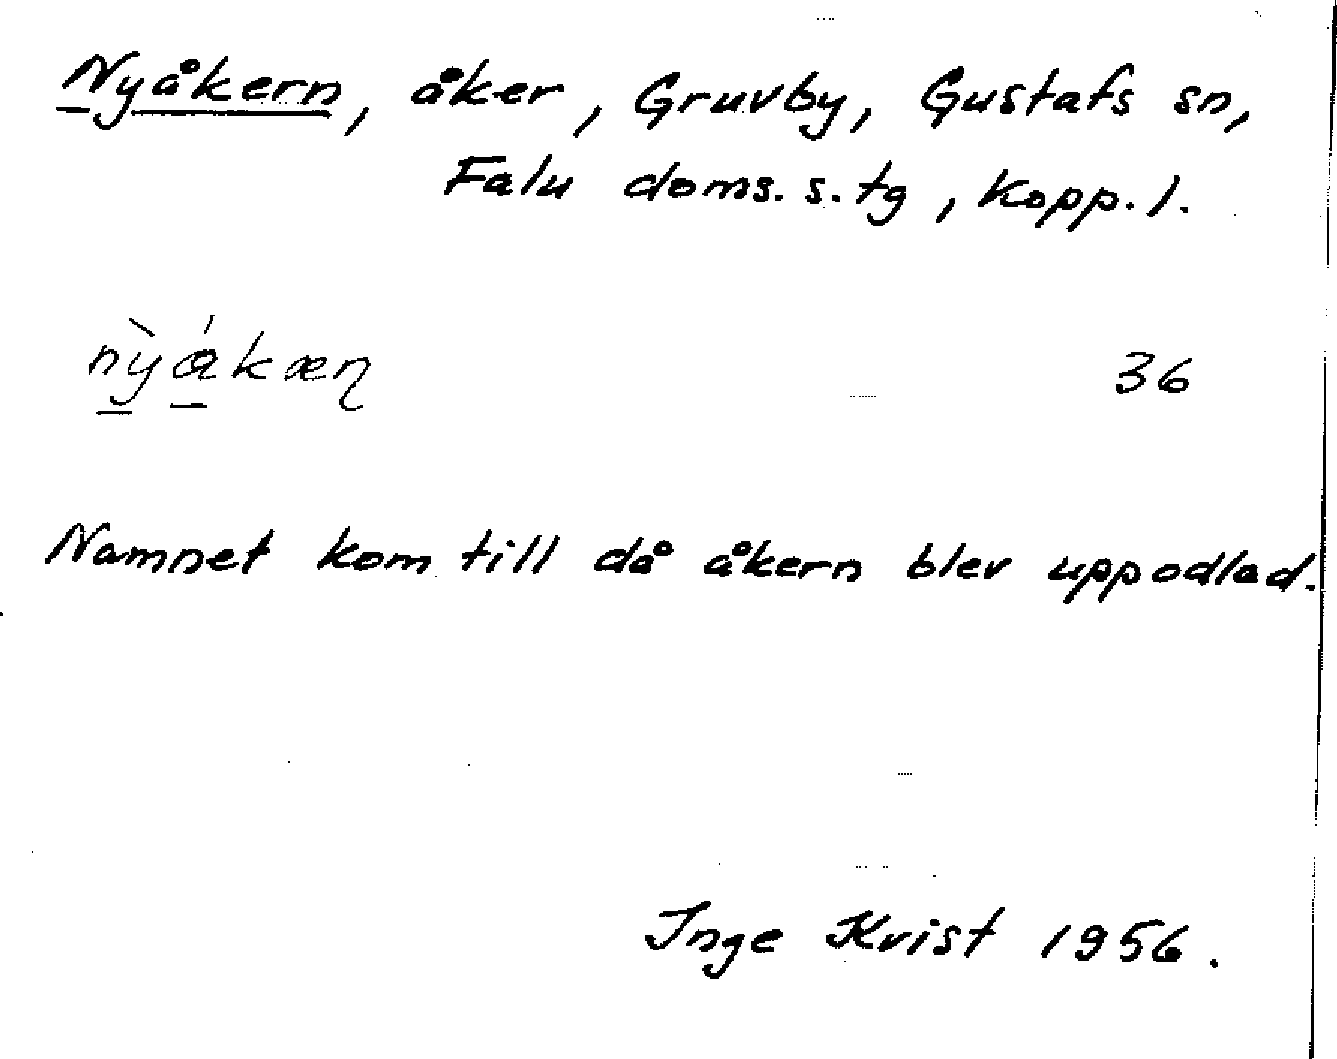 Nyåkern, åker, Gruvby, Gustafs sn,
Falu doms. s. tg, Kopp. l.
36
Namnet kom till då åkern blev uppodlad.
Inge Kvist 1956.